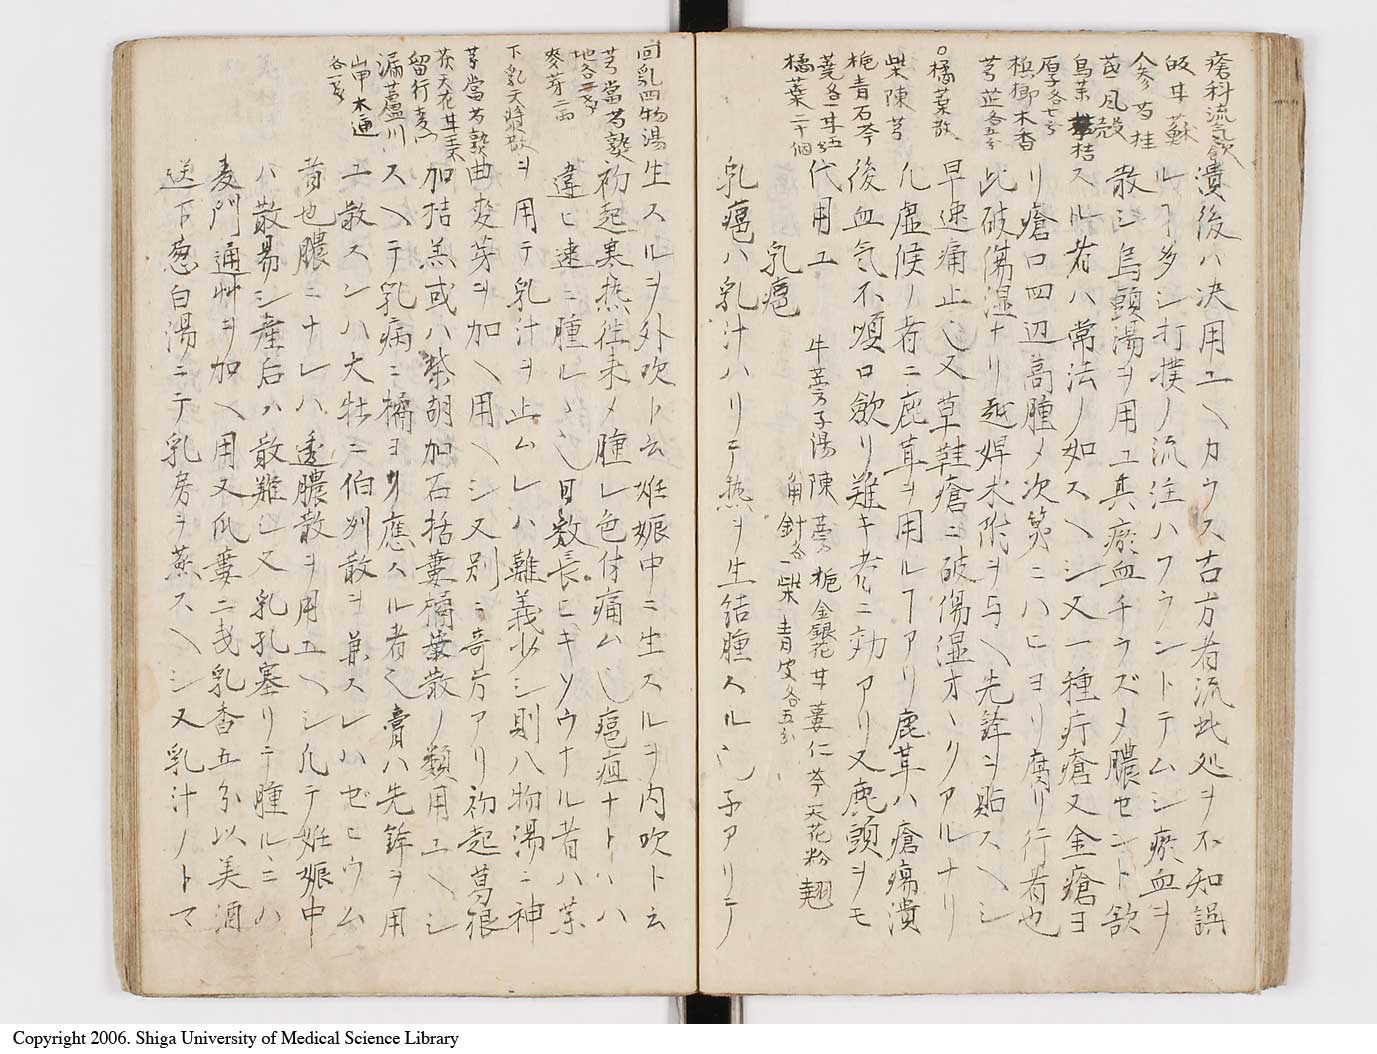 瘡科流気飲
皈甘蘇
人参芍桂
芷風殻
烏荣 桔
厚子各七分
梹榔木香
芎芷各五分
○橘葉散
柴陳芎
梔青石芩
蔞各一甘五
橘葉二十個
潰後ハ决用ユ\カウス古方者流此処ヲ不知誤
ルヿ多シ打撲ノ流注ハフウントテムシ瘀血ヲ
散シ烏頭湯ヲ用ユ真瘀血チラズメ膿セント欲
スル者ハ常法ノ如ス\シ又一種疔瘡又金瘡ヨ
リ瘡口四辺高腫メ次第ニハヒヨリ腐リ行者也
此破傷湿ナリ越婢朮附ヲ与\先鋒ヲ貼ス\シ
早速痛止也又草鞋瘡ニ破傷湿オヽクアルナリ
凡虚候ノ者ニ鹿茸ヲ用ルヿアリ鹿茸ハ瘡瘍潰
後血気不順口歛リ難キ者ニ効アリ又鹿頭ヲモ
代用ユ
牛蒡子湯陳蒡梔金銀花甘蔞仁芩天花粉翹
角針各一柴青皮各五分
乳癰
乳癰ハ乳汁ハリテ熱ヲ生結腫スル也子アリテ
回乳四物湯
芎當芍熟
地各二戔
麥芽二両
下乳天漿散
芎當芍熟
茯天花甘麦
留行麦
漏蘆川
山甲木通
各一戔
生スルヲ外吹ト云妊娠中ニ生スルヲ内吹ト云
初起寒热往来メ腫レ色付痛ム也癰疽ナトハハ
違ヒ速ニ腫ルヽ也日数長ヒキソウナル者ハ荣
ヲ用テ乳汁ヲ止ムレハ難義少シ則八物湯ニ神
曲麥芽ヲ加\用\シ又别ニ奇方アリ初起葛根
加桔羔或ハ柴胡加石括蔞橘葉散ノ類用ユ\シ
ス\テ乳病ニ橘ヨク應スル者也膏ハ先鋒ヲ用
ユ散スンハ大牡ニ伯州散ヲ兼スレハゼヒウム
者也膿ニナレハ透膿散ヲ用ユ\シ凡テ妊娠中
ハ散易シ産后ハ散難シ又乳孔塞リテ腫ルニハ
麦門通艸ヲ加\用又爪蔞二戔乳香五分以美酒
送下葱白湯ニテ乳房ヲ蒸ス\シ又乳汁ノトマ
Copyright 2006. Shiga University of Medical Science Library